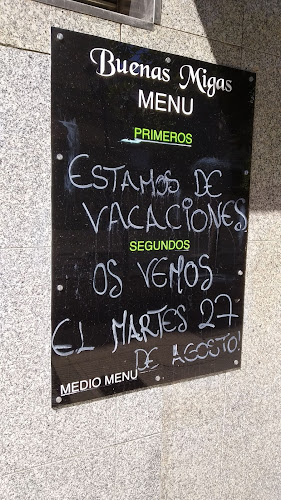 Buenas Migas
MENU
PRIMEROS
ESTAMOS DE
VACACIONES
SEGUNDOS
OS VEMOS
EL MARTES 27
DE AGOSTO!
MEDIO MENU